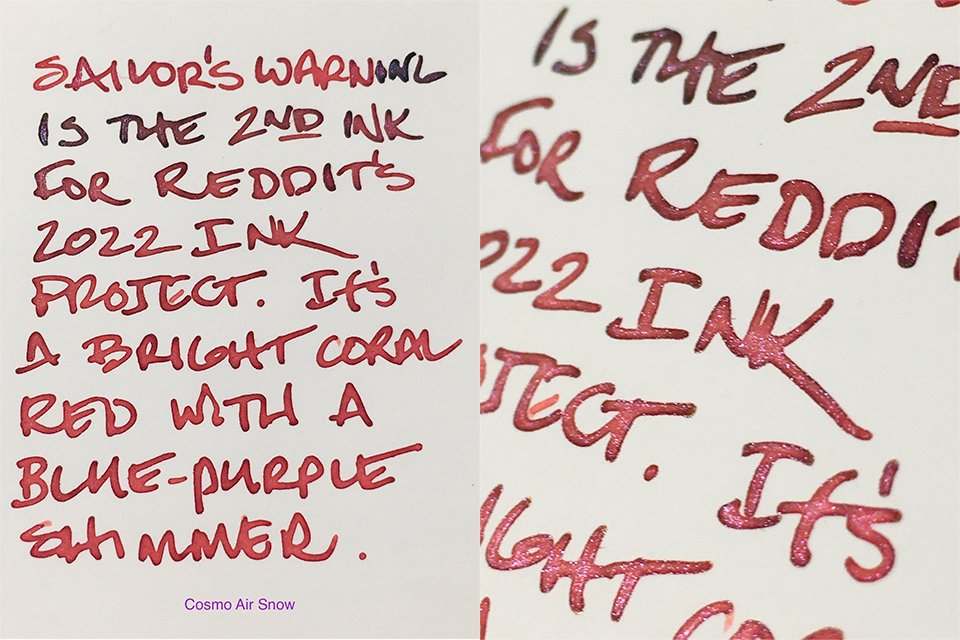 SAILOR'S WARNING
IS THE 2ND INK
FOR REDDIT'S
2022 INK
PROJECT. It's
A BRIGHT CORAL
RED WITH A
BLUE-PURPLE
SHIMMER.
Cosmo Air Snow
IS THE 2ND
FOR REDDIT
022 INK
JECT. It's
IGHT CO